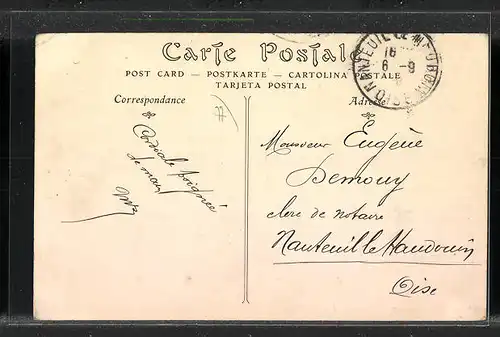 Carte Postale
POST CARD — POSTKARTE — CARTOLINA POSTALE
TARJETA POSTAL
Correspondance
Adresse
Cordiale poignée
de main
Monsieur Eugène
Demouy
clerc de notaire
Nanteuil le Haudouin
Oise
NANTEUIL LE HAUDOUIN
6 - 9
OISE